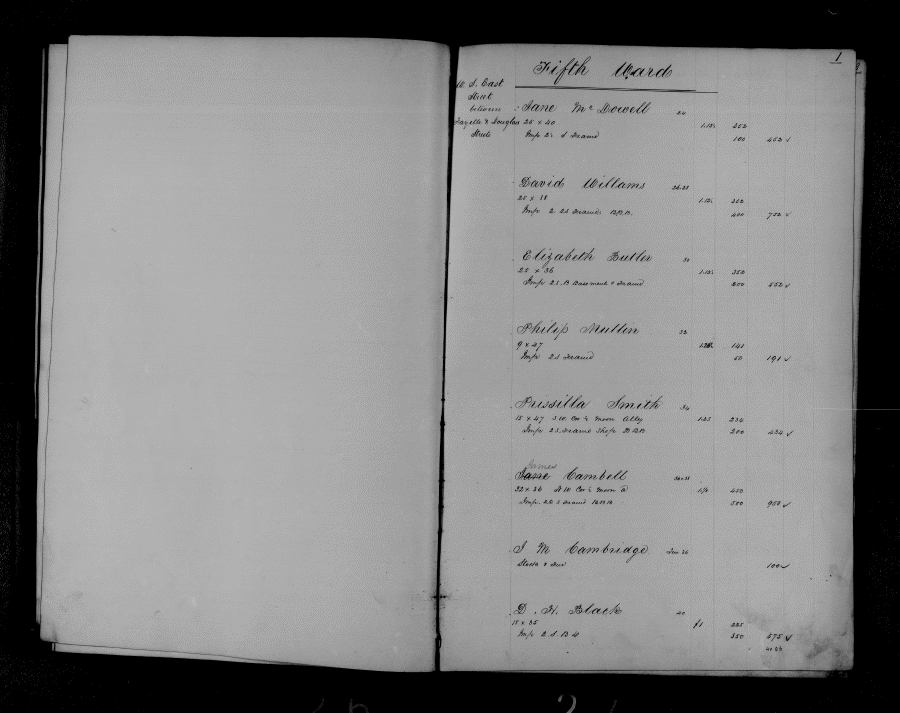 1
Fifth Ward
W. S. East
Street
between
Fayette & Douglas
Streets
Jane Mc Dowell 24
25 x 40 1.12½ 252
Imp 2½ S Frame 100 452 ✓
David Willams 26.28
25 x 18 1.12½ 352
Imp 2 2S Frames B.B. 400 752 ✓
Elizabeth Butler 30
25 x 36 1.12½ 352
Imp 2 S. B Basement & Frame 200 552 ✓
Philip Mullin 32
9 x 47 141
Imp 2 S Frame 50 191 ✓
Prissilla Smith 34
15 x 47 S W Cor & Moon Alley 1.25 234
Imp 2 S. Frame Shop B B 200 434 ✓
James
Jane Cambell 36.38
32 x 36 N W Cor & Moon A 450
Imp. 2 2 S Frame B.B. 500 950 ✓
J M Cambridge
Stock & 100 ✓
D. H. Black 40
15 x 35 225
Imp 2 S. B 350 575 ✓